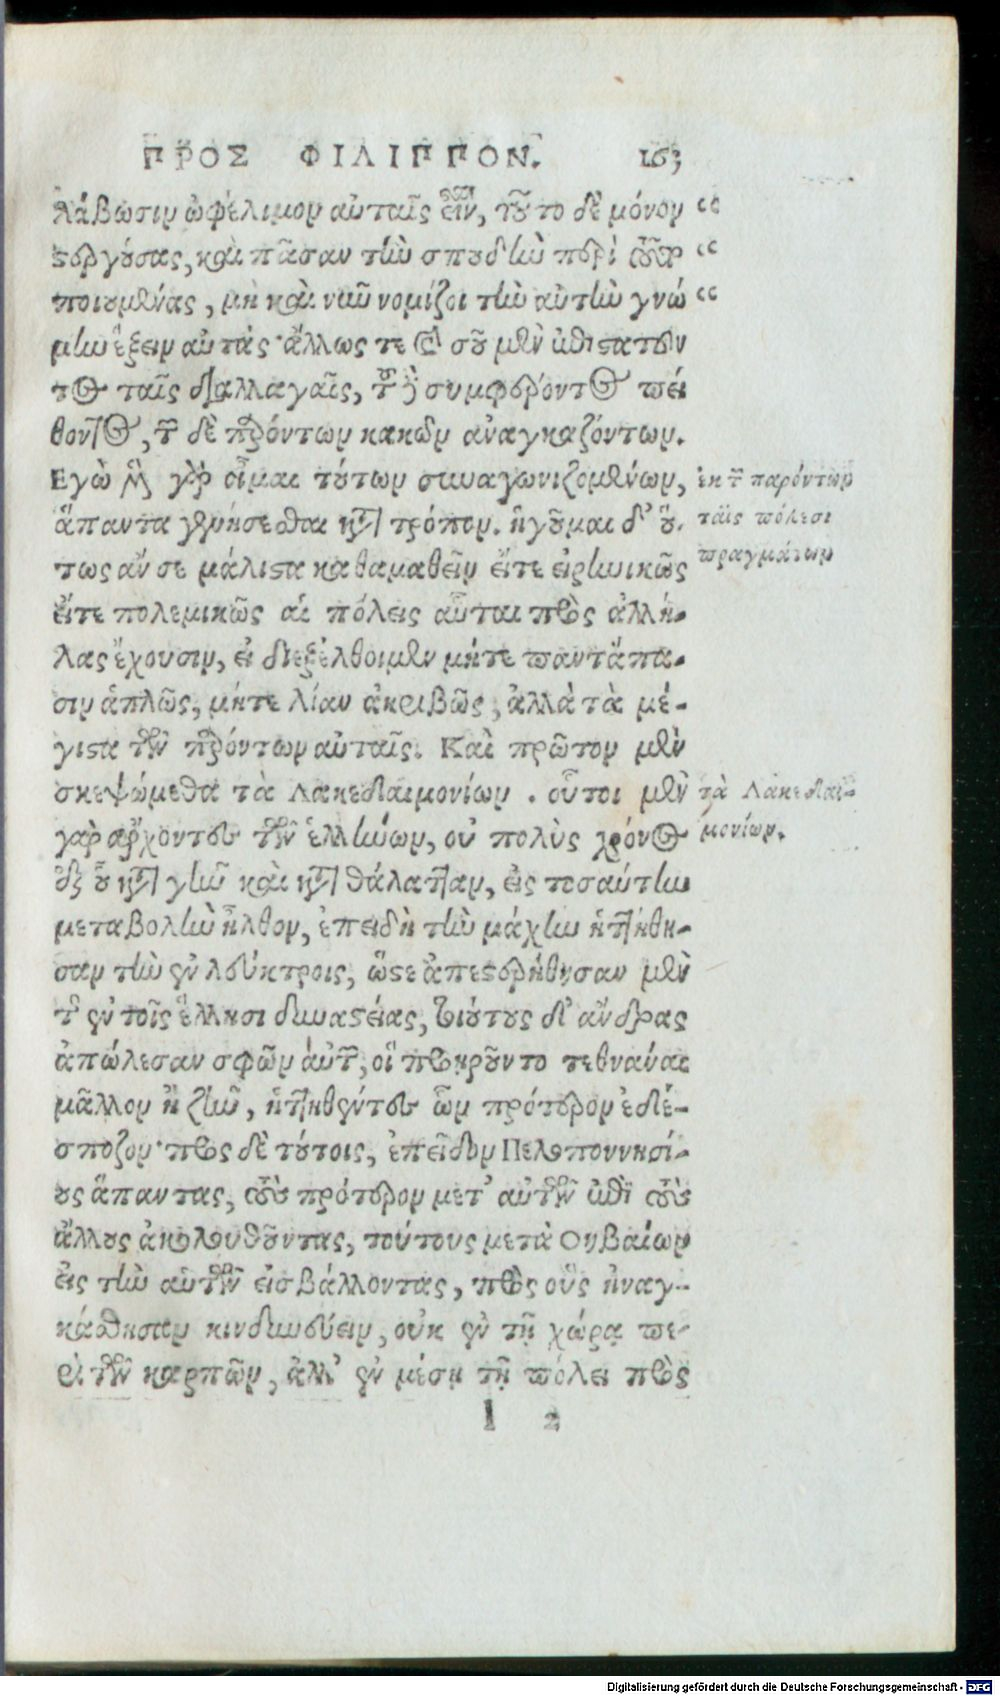 ΠΡΟΣ ΦΙΛΙΠΠΟΝ. 163
λάβωσιν ὠφέλιμον αὐταῖς εἶναι, τοῦτο δὲ μόνον “
στεργούσας, καὶ πᾶσαν τὴν σπουδὴν περὶ τούτου “
ποιουμένας, μὴ καὶ νῦν νομίζοι τὴν αὐτὴν γνώ “
μην ἕξειν αὐτάς· ἄλλως τε καὶ σοῦ μὲν ἐπιστατοῦν
τος ταῖς διαλλαγαῖς, τοῦ δὲ συμφέροντος πεί
θοντος, τῶν δὲ παρόντων κακῶν ἀναγκαζόντων.
Εγὼ μὲν γὰρ οἶμαι τούτων συναγωνιζομένων,
ἅπαντα γενήσεσθαι κατὰ τρόπον. ἡγοῦμαι δ' οὕ-
τως ἄν σε μάλιστα καθαμαθεῖν εἴτε εἰρηνικῶς
εἴτε πολεμικῶς αἱ πόλεις αὗται πρὸς ἀλλή-
λας ἔχουσιν, εἰ διεξέλθοιμεν μήτε παντάπα-
σιν ἁπλῶς, μήτε λίαν ἀκριβῶς, ἀλλὰ τὰ μέ-
γιστα τῶν παρόντων αὐταῖς. Καὶ πρῶτον μὲν
σκεψώμεθα τὰ Λακεδαιμονίων. οὗτοι μὲν
γὰρ ἄρχοντες τῶν ἑλλήνων, οὐ πολὺς χρόνος
ἐξ οὗ κατὰ γῆν καὶ κατὰ θάλατταν, εἰς τοσαύτην
μεταβολὴν ἦλθον, ἐπειδὴ τὴν μάχην ἡττήθη-
σαν τὴν ἐν λεύκτροις, ὥστε ἀπεστερήθησαν μὲν
τῆς ἐν τοῖς ἕλλησι δυναστείας, τοιούτους δ' ἄνδρας
ἀπώλεσαν σφῶν αὐτῶν, οἳ προῃροῦντο τεθνάναι
μᾶλλον ἢ ζῆν, ἡττηθέντες ὧν πρότερον ἐδέ-
σποζον· πρὸς δὲ τούτοις, ἐπεῖδον Πελοποννησί-
ους ἅπαντας, τοὺς πρότερον μετ' αὐτῶν ἐπὶ τοὺς
ἄλλους ἀκολουθοῦντας, τούτους μετὰ Θηβαίων
εἰς τὴν αὑτῶν εἰσβάλλοντας, πρὸς οὓς ἠναγ-
κάσθησαν κινδυνεύειν, οὐκ ἐν τῇ χώρᾳ πε-
ρὶ τῶν καρπῶν, ἀλλ' ἐν μέσῃ τῇ πόλει πρὸς
l 2
ἐκ τῶν παρόντων
ταῖς πόλεσι
πραγμάτων
τὰ Λακεδαι-
μονίων.
Digitalisierung gefördert durch die Deutsche Forschungsgemeinschaft - DFG